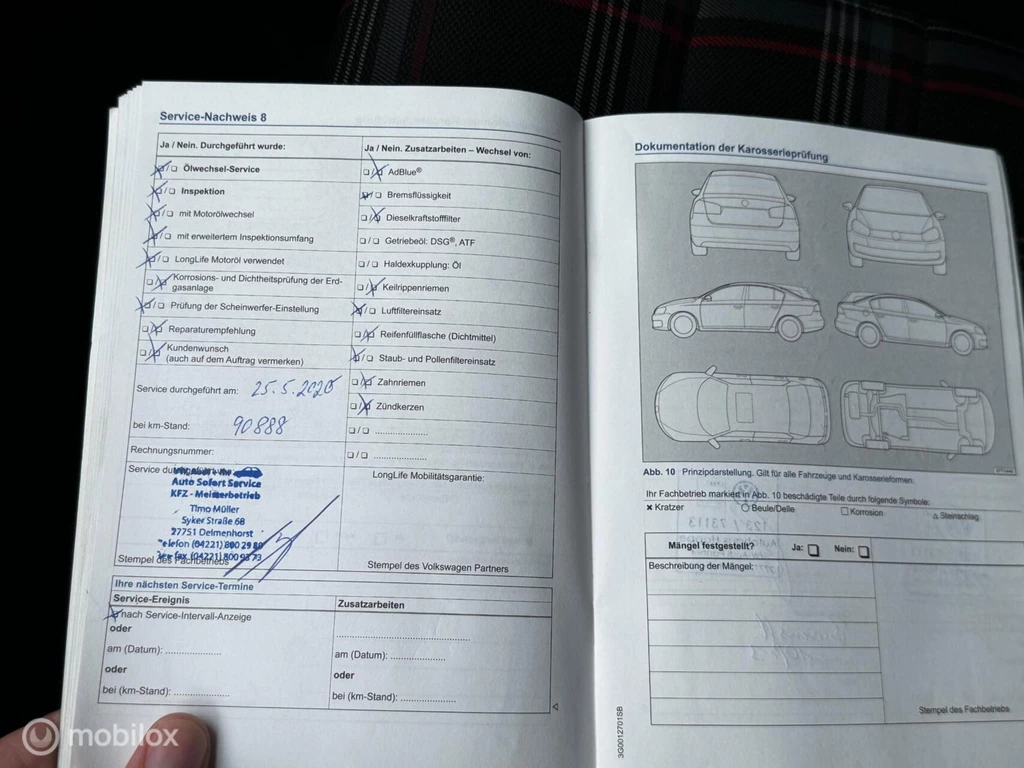 Service-Nachweis 8
Ja / Nein. Durchgeführt wurde:
Ölwechsel-Service
Inspektion
mit Motorölwechsel
mit erweitertem Inspektionsumfang
LongLife Motoröl verwendet
Korrosions- und Dichtheitsprüfung der Erd-
gasanlage
Prüfung der Scheinwerfer-Einstellung
Reparaturempfehlung
Kundenwunsch
(auch auf dem Auftrag vermerken)
Service durchgeführt am: 25.5.2020
bei km-Stand: 90888
Rechnungsnummer:
Auto Sofort Service
KFZ - Meisterbetrieb
Timo Müller
Syker Straße 68
27751 Delmenhorst
Telefon (04221) 800 29 80
Stempel des Fachbetriebs
Ja / Nein. Zusatzarbeiten – Wechsel von:
AdBlue®
Bremsflüssigkeit
Dieselkraftstofffilter
Getriebeöl: DSG®, ATF
Haldexkupplung: Öl
Keilrippenriemen
Luftfiltereinsatz
Reifenfüllflasche (Dichtmittel)
Staub- und Pollenfiltereinsatz
Zahnriemen
Zündkerzen
LongLife Mobilitätsgarantie:
Stempel des Volkswagen Partners
Ihre nächsten Service-Termine
Service-Ereignis
nach Service-Intervall-Anzeige
oder
am (Datum): ....................
oder
bei (km-Stand): ....................
Zusatzarbeiten
am (Datum): ....................
oder
bei (km-Stand): ....................
Dokumentation der Karosserieprüfung
Abb. 10 Prinzipdarstellung. Gilt für alle Fahrzeuge und Karosserieformen.
Ihr Fachbetrieb markiert in Abb. 10 beschädigte Teile durch folgende Symbole:
Kratzer
Beule/Delle
Korrosion
Steinschlag
Mängel festgestellt? Ja: Nein:
Beschreibung der Mängel:
Stempel des Fachbetriebs
3G0012701SB
mobilox